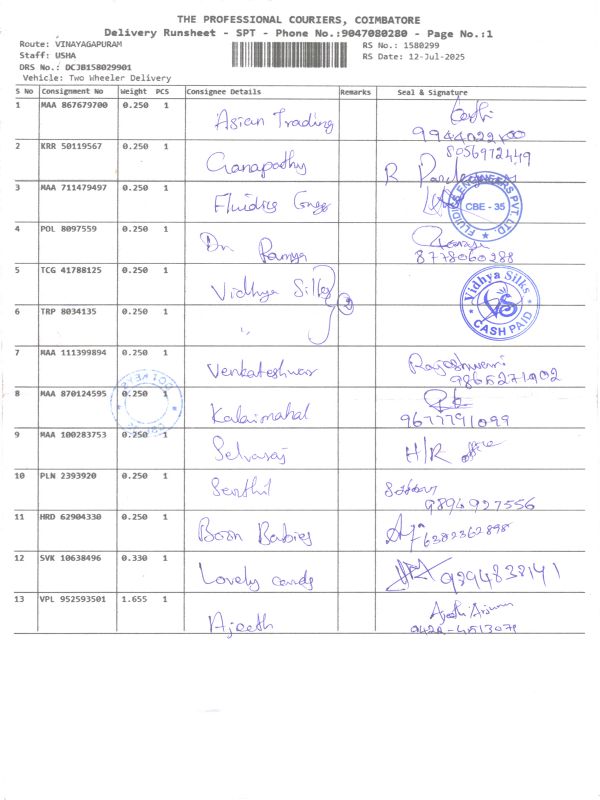 THE PROFESSIONAL COURIERS, COIMBATORE
Delivery Runsheet - SPT - Phone No.:9047080280 - Page No.:1
Route: VINAYAGAPURAM RS No.: 1580299
Staff: USHA RS Date: 12-Jul-2025
DRS No.: DCJB158029901
Vehicle: Two Wheeler Delivery
S No Consignment No Weight PCS Consignee Details Remarks Seal & Signature
1 MAA 867679700 0.250 1 Asian Trading
2 KRR 50119567 0.250 1 Ganapathy 8056972449
3 MAA 711479497 0.250 1 Fluidics Engg
FLUIDICS ENGINEERS PVT. LTD. CBE - 35
4 POL 8097559 0.250 1 Dr Ramya 8778060288
5 TCG 41788125 0.250 1 Vidhya Silks
Vidhya Silks VS CASH PAID
6 TRP 8034135 0.250 1 "
7 MAA 111399894 0.250 1 Venkateshwar Rajeshwari
9865271902
8 MAA 870124595 0.250 1 Kalaimahal 9677791099
9 MAA 100283753 0.250 1 Selvaraj H/R office
10 PLN 2393920 0.250 1 Senthil 9894927556
11 HRD 62904330 0.250 1 Born Babies 6382362898
12 SVK 10638496 0.330 1 Lovely cards 9894838141
13 VPL 952593501 1.655 1 Ajeeth